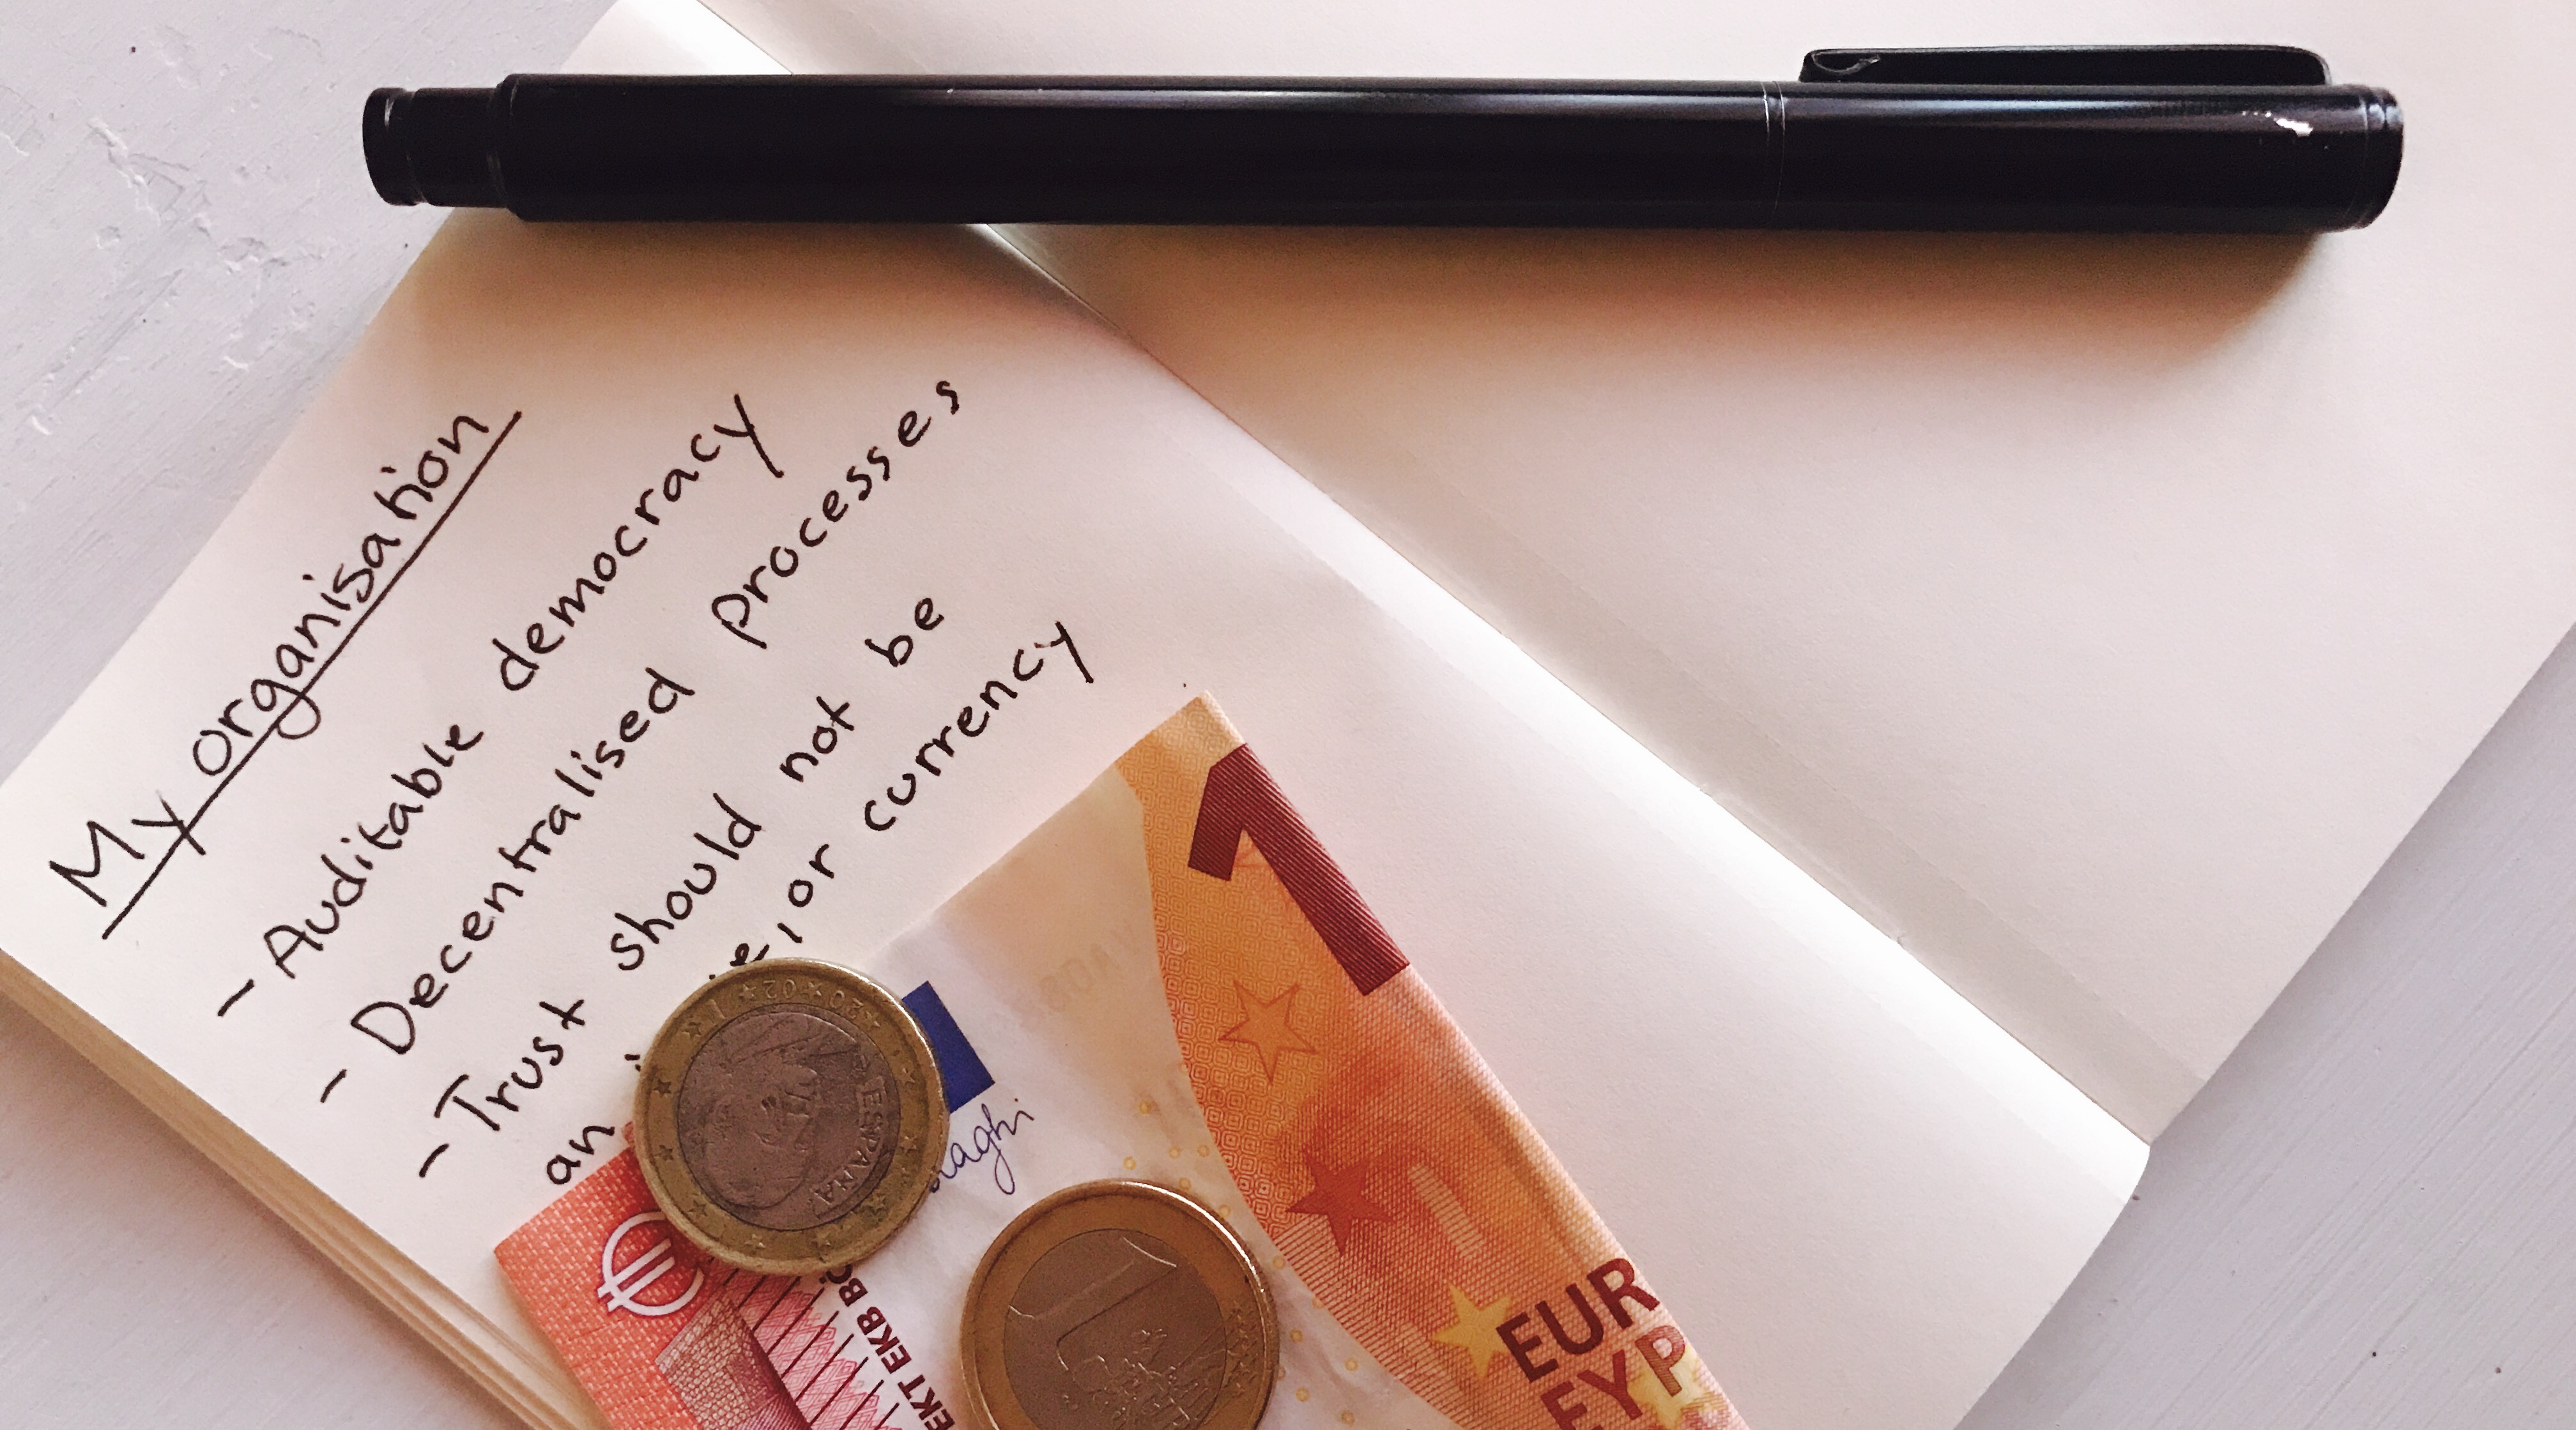 My organisation
- Auditable democracy
- Decentralised processes
- Trust should not be
an , or currency
2002
ESPAÑA
1
aghi
€
EKT EKB
1
EUR
EYP